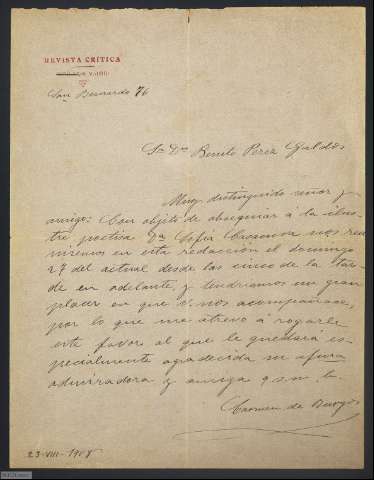 REVISTA CRÍTICA
San Bernardo 76
Sr Dn Benito Perez Galdós
Muy distinguido señor y
amigo: Con objeto de obsequiar á la ilus-
tre poetisa Da Sofia Casanova nos reu
niremos en esta redacción el domingo
27 del actual desde las cinco de la tar-
de en adelante, y tendríamos un gran
placer en que V. nos acompañase,
por lo que me atrevo á rogarle
este favor al que le quedará es-
pecialmente agradecida su afma
admiradora y amiga q.s.m.b.
Carmen de Burgos
23-VIII-1908